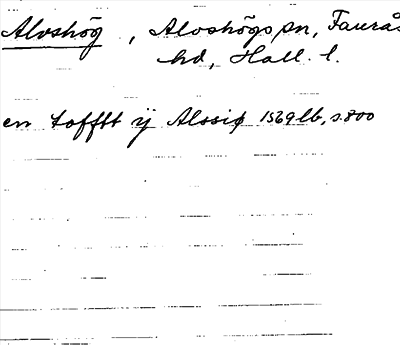 Alvshög, Alvshögs sn, Faurås
hd, Hall. l.
en tofftt ÿ Alssiø 1569 lb, s. 800